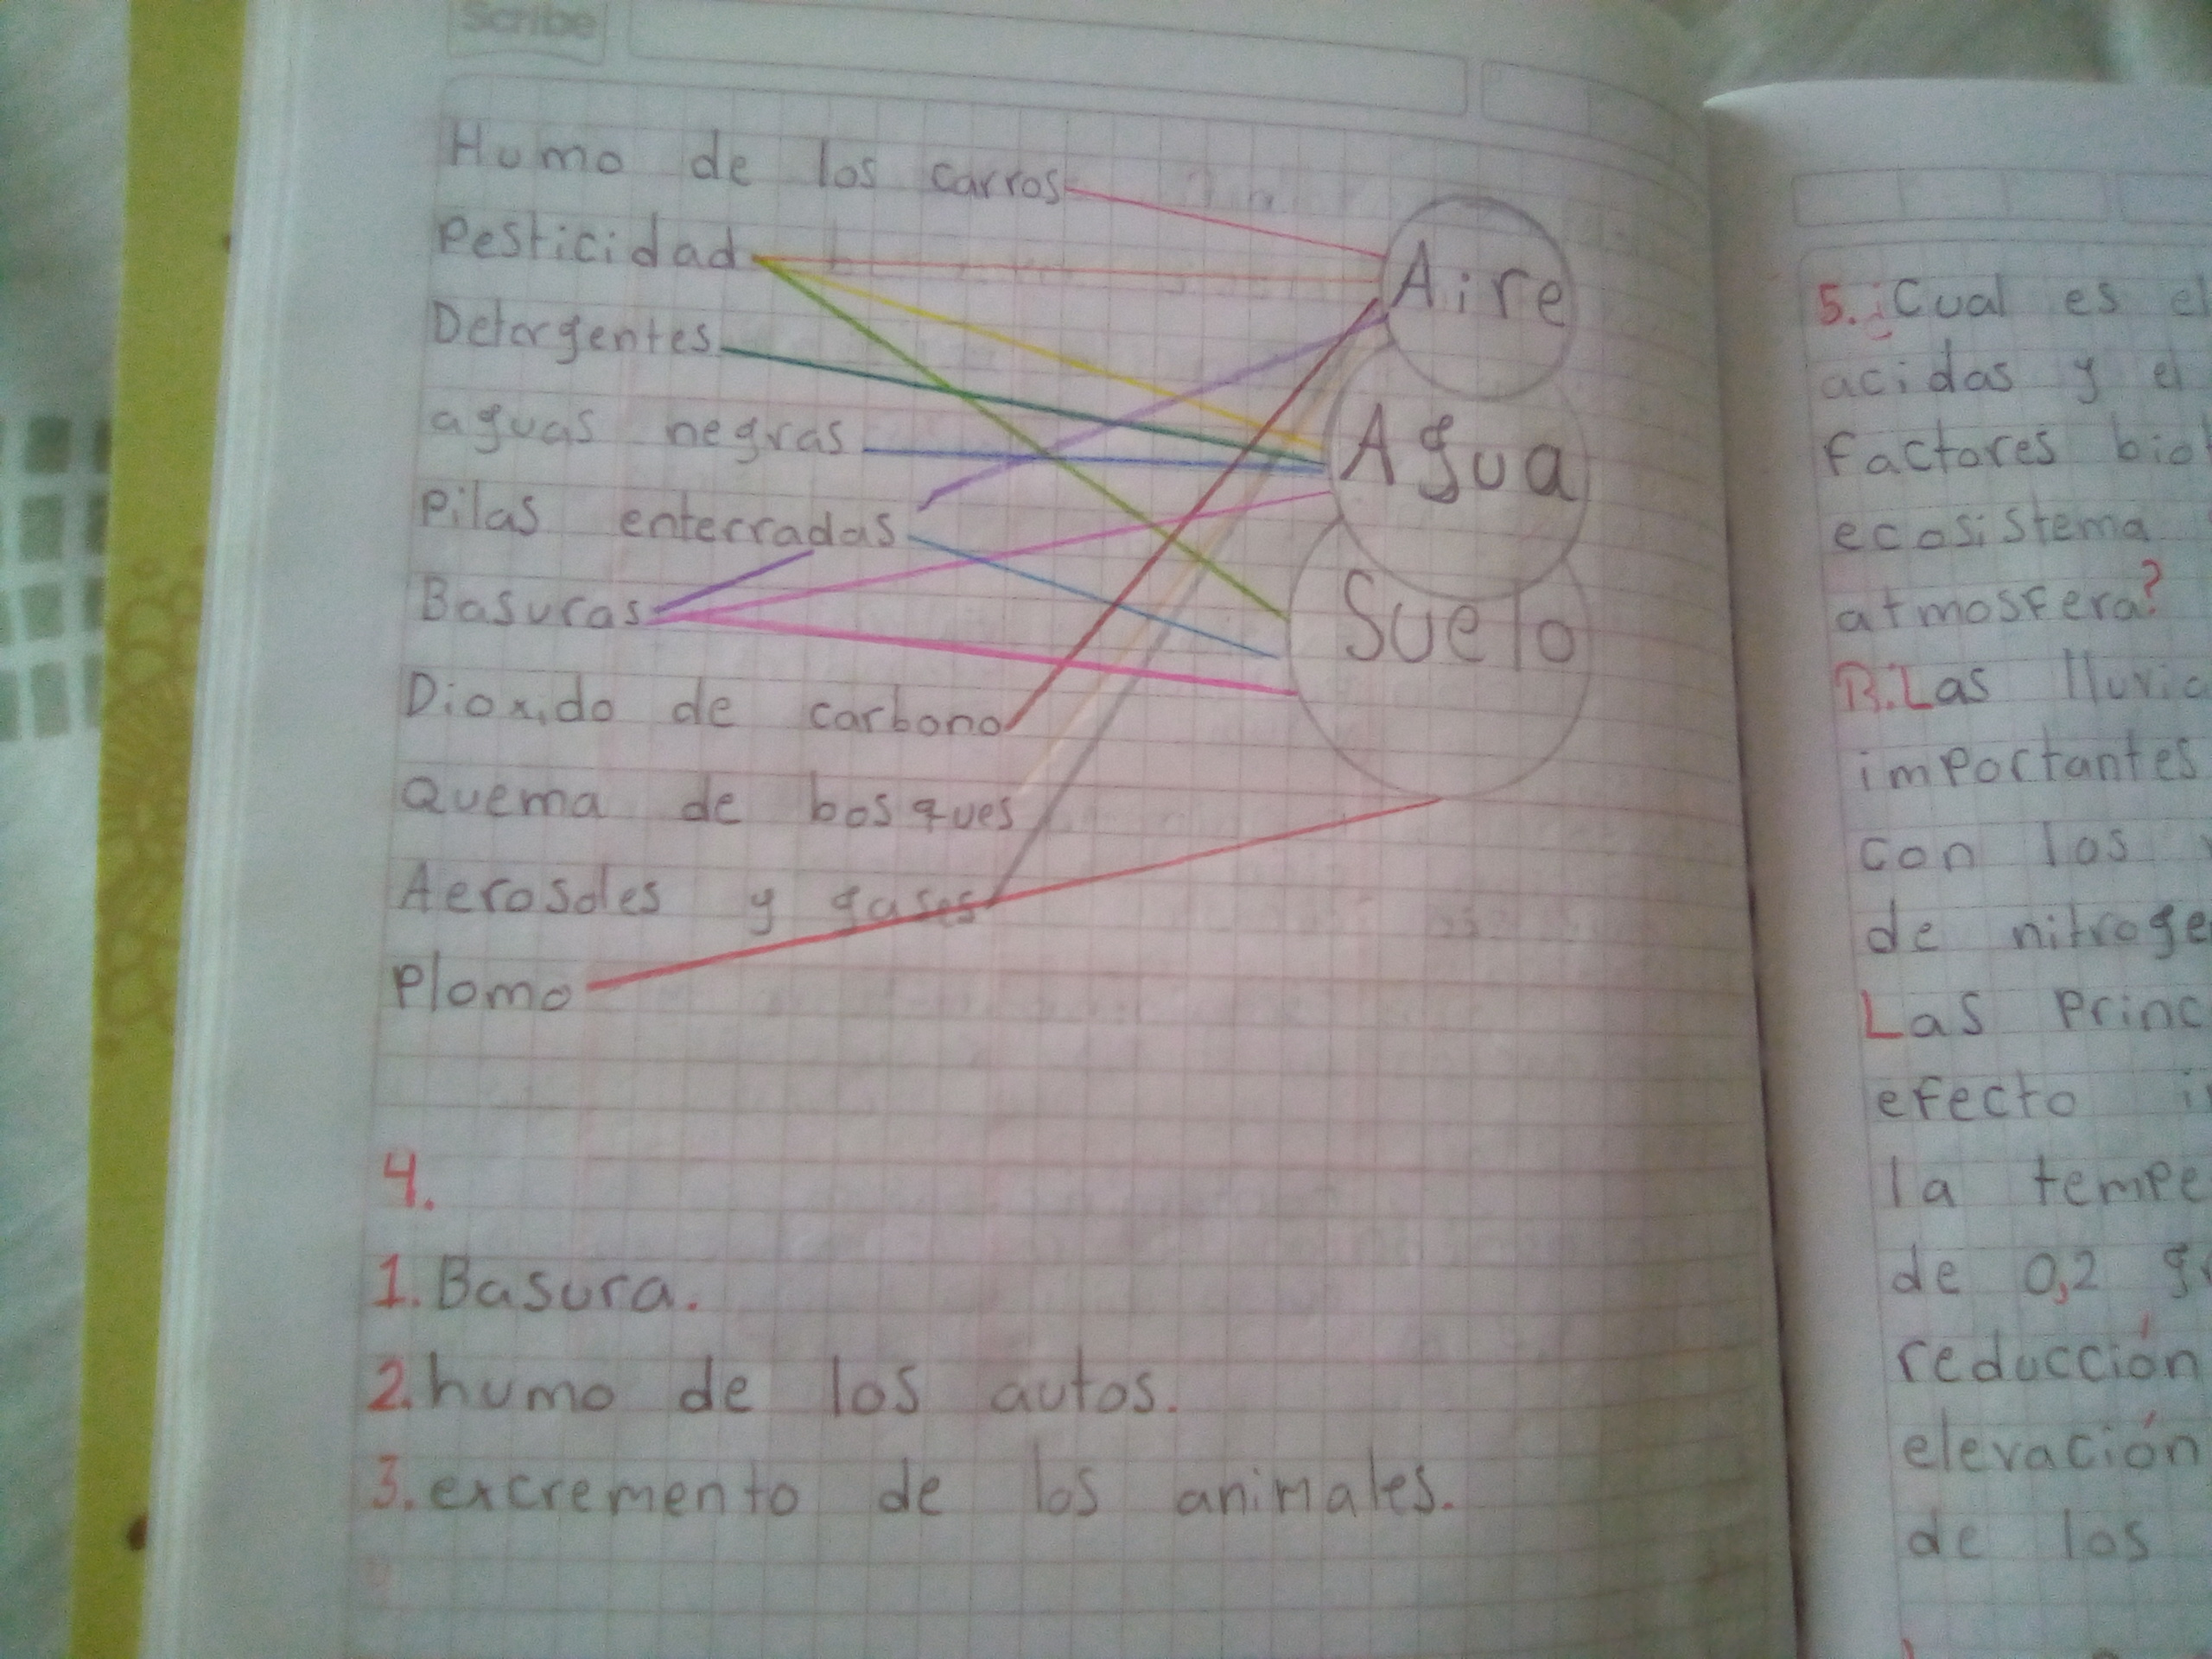 Scribe
Humo de los carros
Pesticidad
Detergentes
aguas negras
Pilas enterradas
Basuras
Dioxido de carbono
Quema de bosques
Aerosoles y gases
Plomo
Aire
Agua
Suelo
4.
1. Basura.
2. humo de los autos.
3. excremento de los animales.
5. ¿Cual es el
acidas y el
factores biol
ecosistema
atmosfera?
R. Las lluvia
importantes
con los
de nitroge
Las princ
efecto in
la tempe
de 0,2 g
reducción
elevación
de los